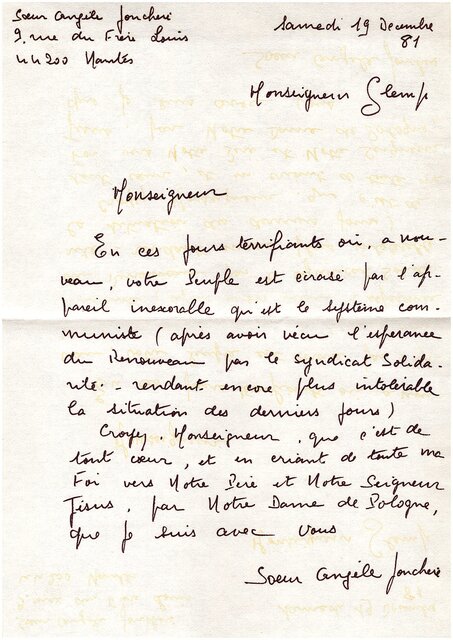 Sœur Angèle Joncheré
9, rue du Frère Louis
44200 Nantes
Samedi 19 Décembre
81
Monseigneur Glemp
Monseigneur
En ces jours terrifiants où, a nou-
veau, votre Peuple est écrasé par l'ap-
pareil inexorable qu'est le système com-
muniste (après avoir vécu l'espérance
du Renouveau par le Syndicat Solida-
rité - rendant encore plus intolérable
la situation des derniers jours)
Croyez, Monseigneur, que c'est de
tout cœur, et en criant de toute ma
Foi vers Notre Père et Notre Seigneur
Jésus, par Notre Dame de Pologne,
que je suis avec vous
Sœur Angèle Joncheré